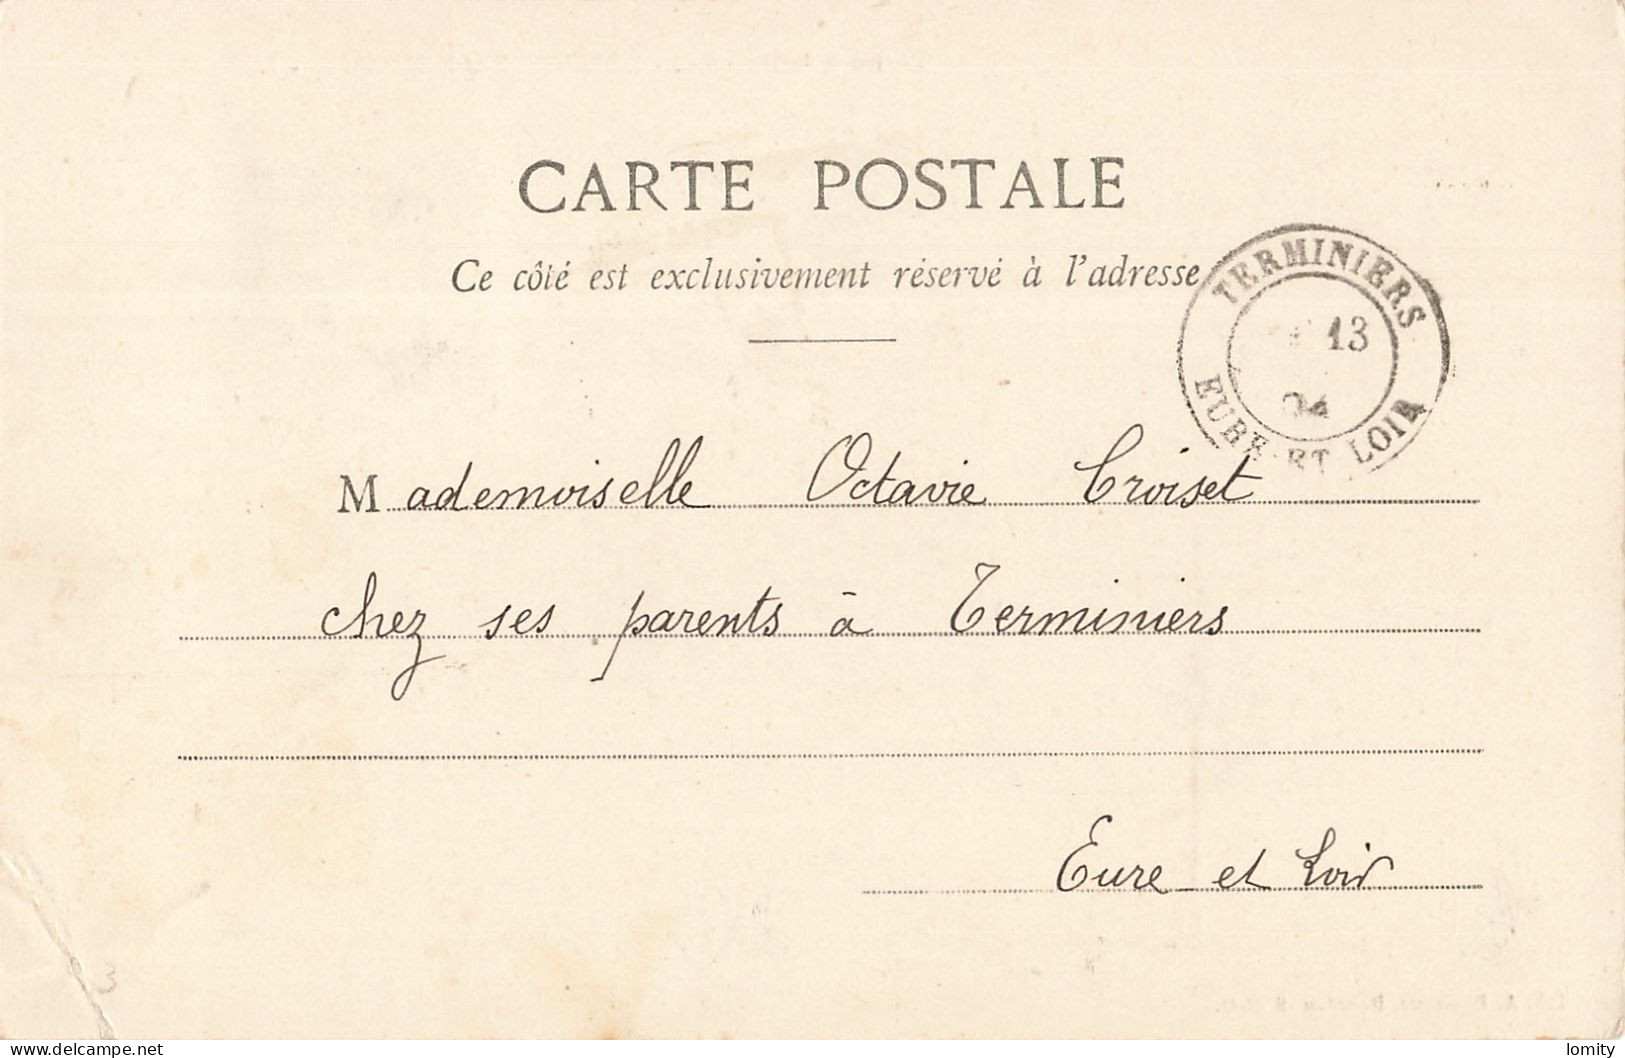 CARTE POSTALE
Ce côté est exclusivement réservé à l'adresse
TERMINIERS
13
04
EURE-ET-LOIR
Mademoiselle Octavie Croiset
chez ses parents à Terminiers
Eure et Loir
3
delcampe.net
lomity